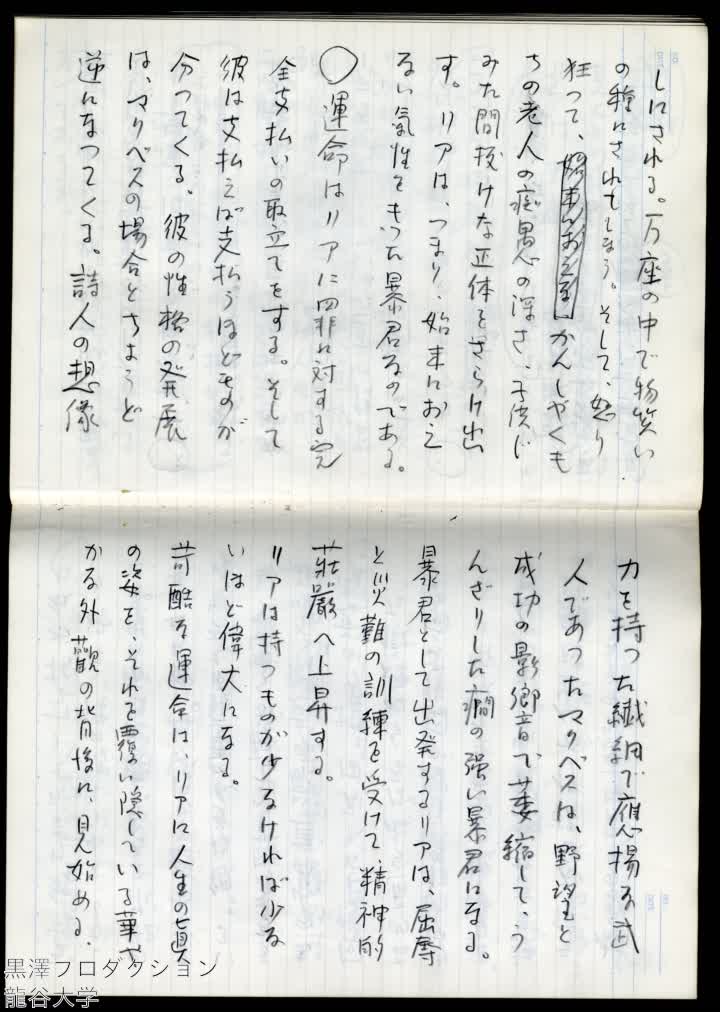 しにされる。万座の中で物笑い
の種にされてしまう。そして、怒り
狂って、かんしやくも
ちの老人の痴愚の深さ、子供じ
みた間抜けな正体をさらけ出
す。リアは、つまり、始末におえ
ない気性をもった暴君なのである。
○運命はリアに罪に対する完
全支払いの取立てをする。そして
彼は支払えば支払うほどものが
分つてくる。彼の性格の発展
は、マクベスの場合とちようど
逆になつてくる。詩人の想像
力を持つた繊細で鷹揚な武
人であつたマクベスは、野望と
成功の影響で萎縮して、う
んざりした癇の強い暴君になる。
暴君として出発するリアは、屈辱
と災難の訓練を受けて、精神的
荘厳へ上昇する。
リアは持つものが少なければ少な
いほど偉大になる。
苛酷な運命は、リアに人生の真
の姿を、それを覆い隠している華や
かな外観の背後に、見始める、
黒澤プロダクション
龍谷大学